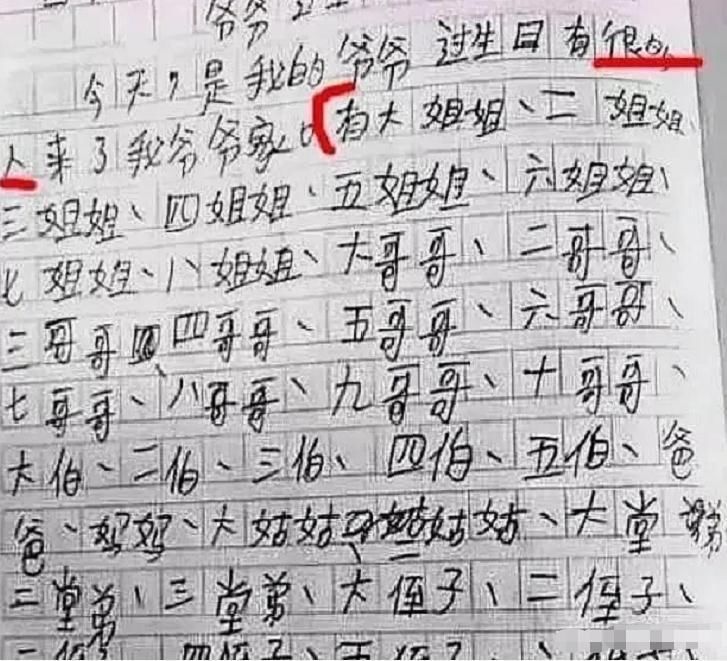 爷爷过生
今天,是我的爷爷过生日有很多
人来了我爷爷家。有大姐姐、二姐姐、
三姐姐、四姐姐、五姐姐、六姐姐、
七姐姐、八姐姐、大哥哥、二哥哥、
三哥哥、四哥哥、五哥哥、六哥哥、
七哥哥、八哥哥、九哥哥、十哥哥、
大伯、二伯、三伯、四伯、五伯、爸
爸、妈妈、大姑姑、二姑姑、大堂弟
二堂弟、三堂弟、大侄子、二侄子、
三侄子、四侄子、五侄子、